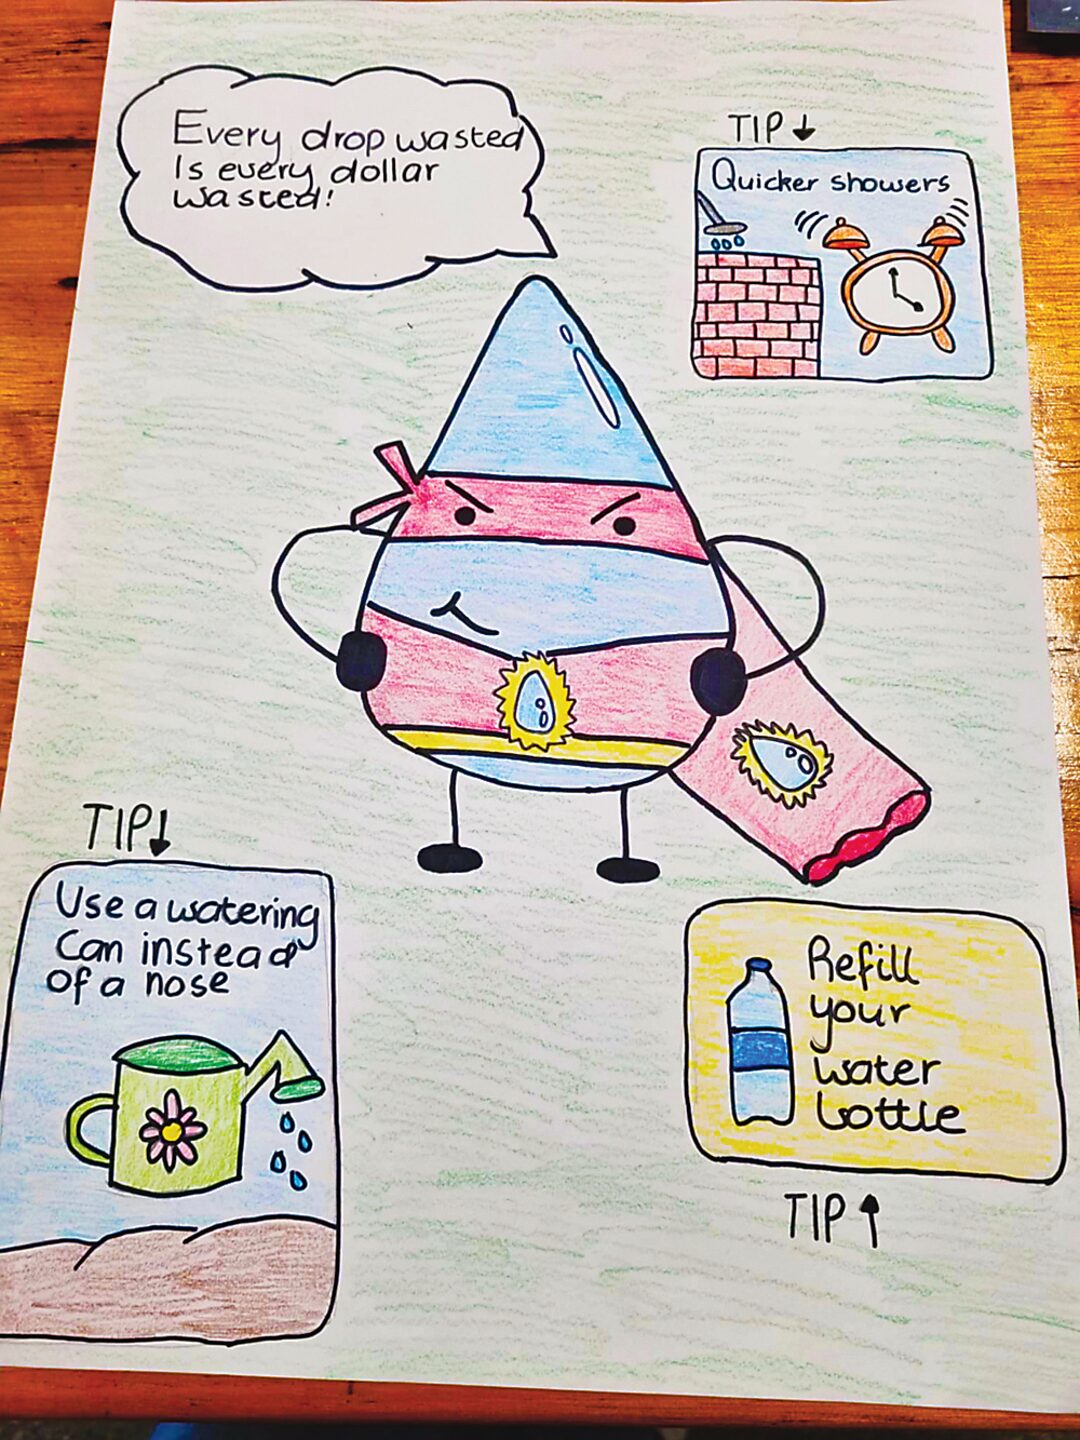 Every drop wasted
Is every dollar
wasted!
TIP↓
Quicker showers
TIP↓
Use a watering
Can instead
of a nose
Refill
your
water
bottle
TIP↑